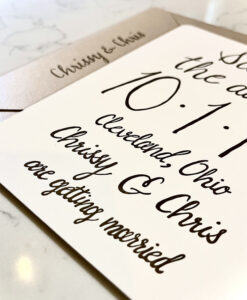 Chrissy & Chris
the
10.1.1
Cleveland, Ohio
Chrissy & Chris
are getting married